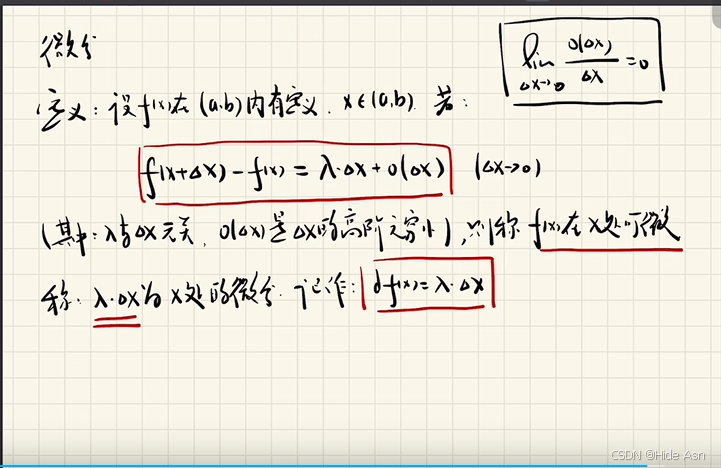 微分
lim Δx→0 o(Δx)/Δx = 0
定义：设f(x)在(a,b)内有定义．x∈(a,b)．若：
f(x+Δx)-f(x)=λ·Δx+o(Δx) (Δx→0)
(其中：λ与Δx无关，o(Δx)是Δx的高阶无穷小)，则称 f(x)在x处可微
称：λ·Δx为x处的微分．记作：df(x)=λ·Δx
CSDN @Hide Aen